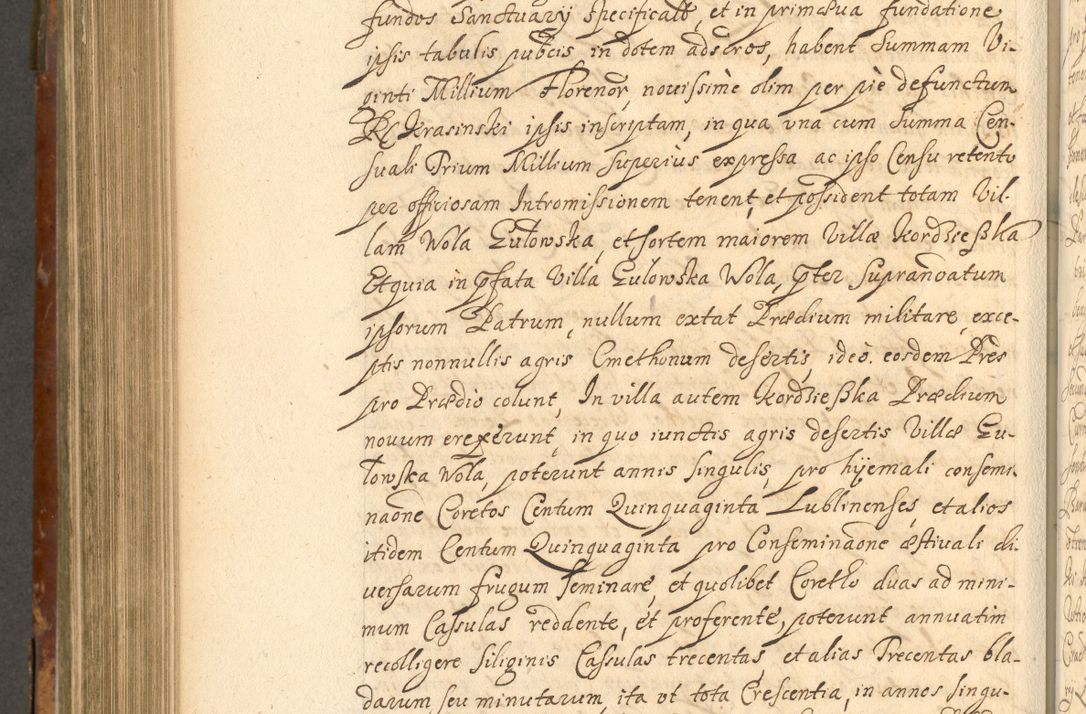 fundos Sanctuarÿ specificatt, et in primæua fundatione
ipsis tabulis pubcis in dotem adscros, habent Summam Vi-
ginti Millium Florenor, nouissimè olim per piè defunctum
Krasinski ipsis inscriptam, in qua vna cum Summa Cen-
suali Trium Millium superiùs expressa ac ipso Censu retento
per officiosam Intromissionem tenent et possident totam Vil-
lam Wola Gułowska, et sortem maiorem Villæ Kordzießka
Et quia in pfata Villa Gułowska Wola, pter supranoatum
ipsorum Patrum, nullum extat Prædium militare, exce-
ptis nonnullis agris Cmethonum desertis, ideò eosdem Pres
pro Prædio colunt, In villa autem Kordzießka Prædium
nouum erexerunt, in quo iunctis agris desertis Villæ Gu-
łowska Wola, poterunt annis singulis, pro hÿemali consemi-
naone Coretos Centum Quinquaginta Lublinenses, et alios
itidem Centum Quinquaginta pro Conseminaone æstiuali di-
uersarum frugum seminare, et quolibet Coretto duas ad mini-
mum Cassulas reddente, et proferente, poterunt annuatim
recolligere siliginis Cassulas trecentas et alias Trecentas bla-
darum seu minutarum, ita vt tota Crescentia, in annos singu-